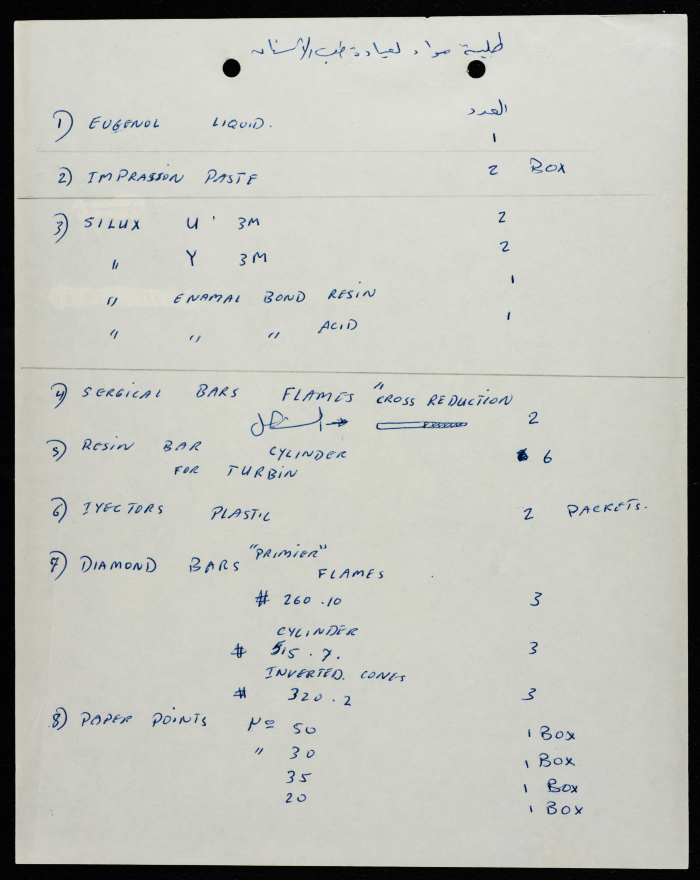 طلبية مواد لعيادة طب الأسنان
العدد
1) EUGENOL LIQUID. 1
2) IMPRASSON PASTE 2 BOX
3) SILUX U' 3M 2
" Y 3M 2
" ENAMAL BOND RESIN 1
" " " ACID 1
4) SERGICAL BARS FLAMES "CROSS REDUCTION
الشكل → 2
5) RESIN BAR CYLINDER 6
FOR TURBIN
6) IYECTORS PLASTIC 2 PACKETS.
7) DIAMOND BARS "PRIMIER"
FLAMES
# 260.10 3
CYLINDER
# 515.7. 3
INVERTED. CONES
# 320.2 3
8) PAPER POINTS Nº 50 1 BOX
" 30 1 BOX
35 1 BOX
20 1 BOX